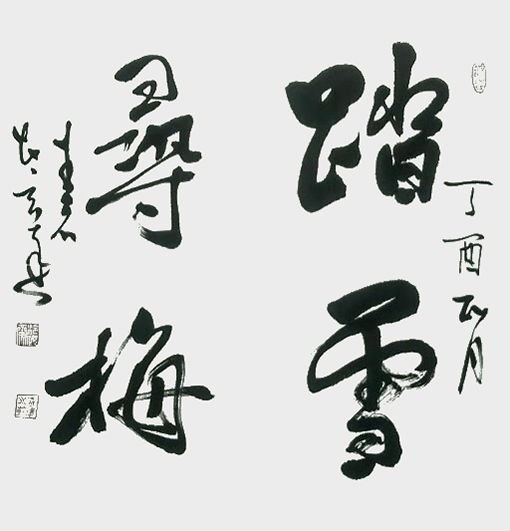 踏雪
尋梅
丁酉正月